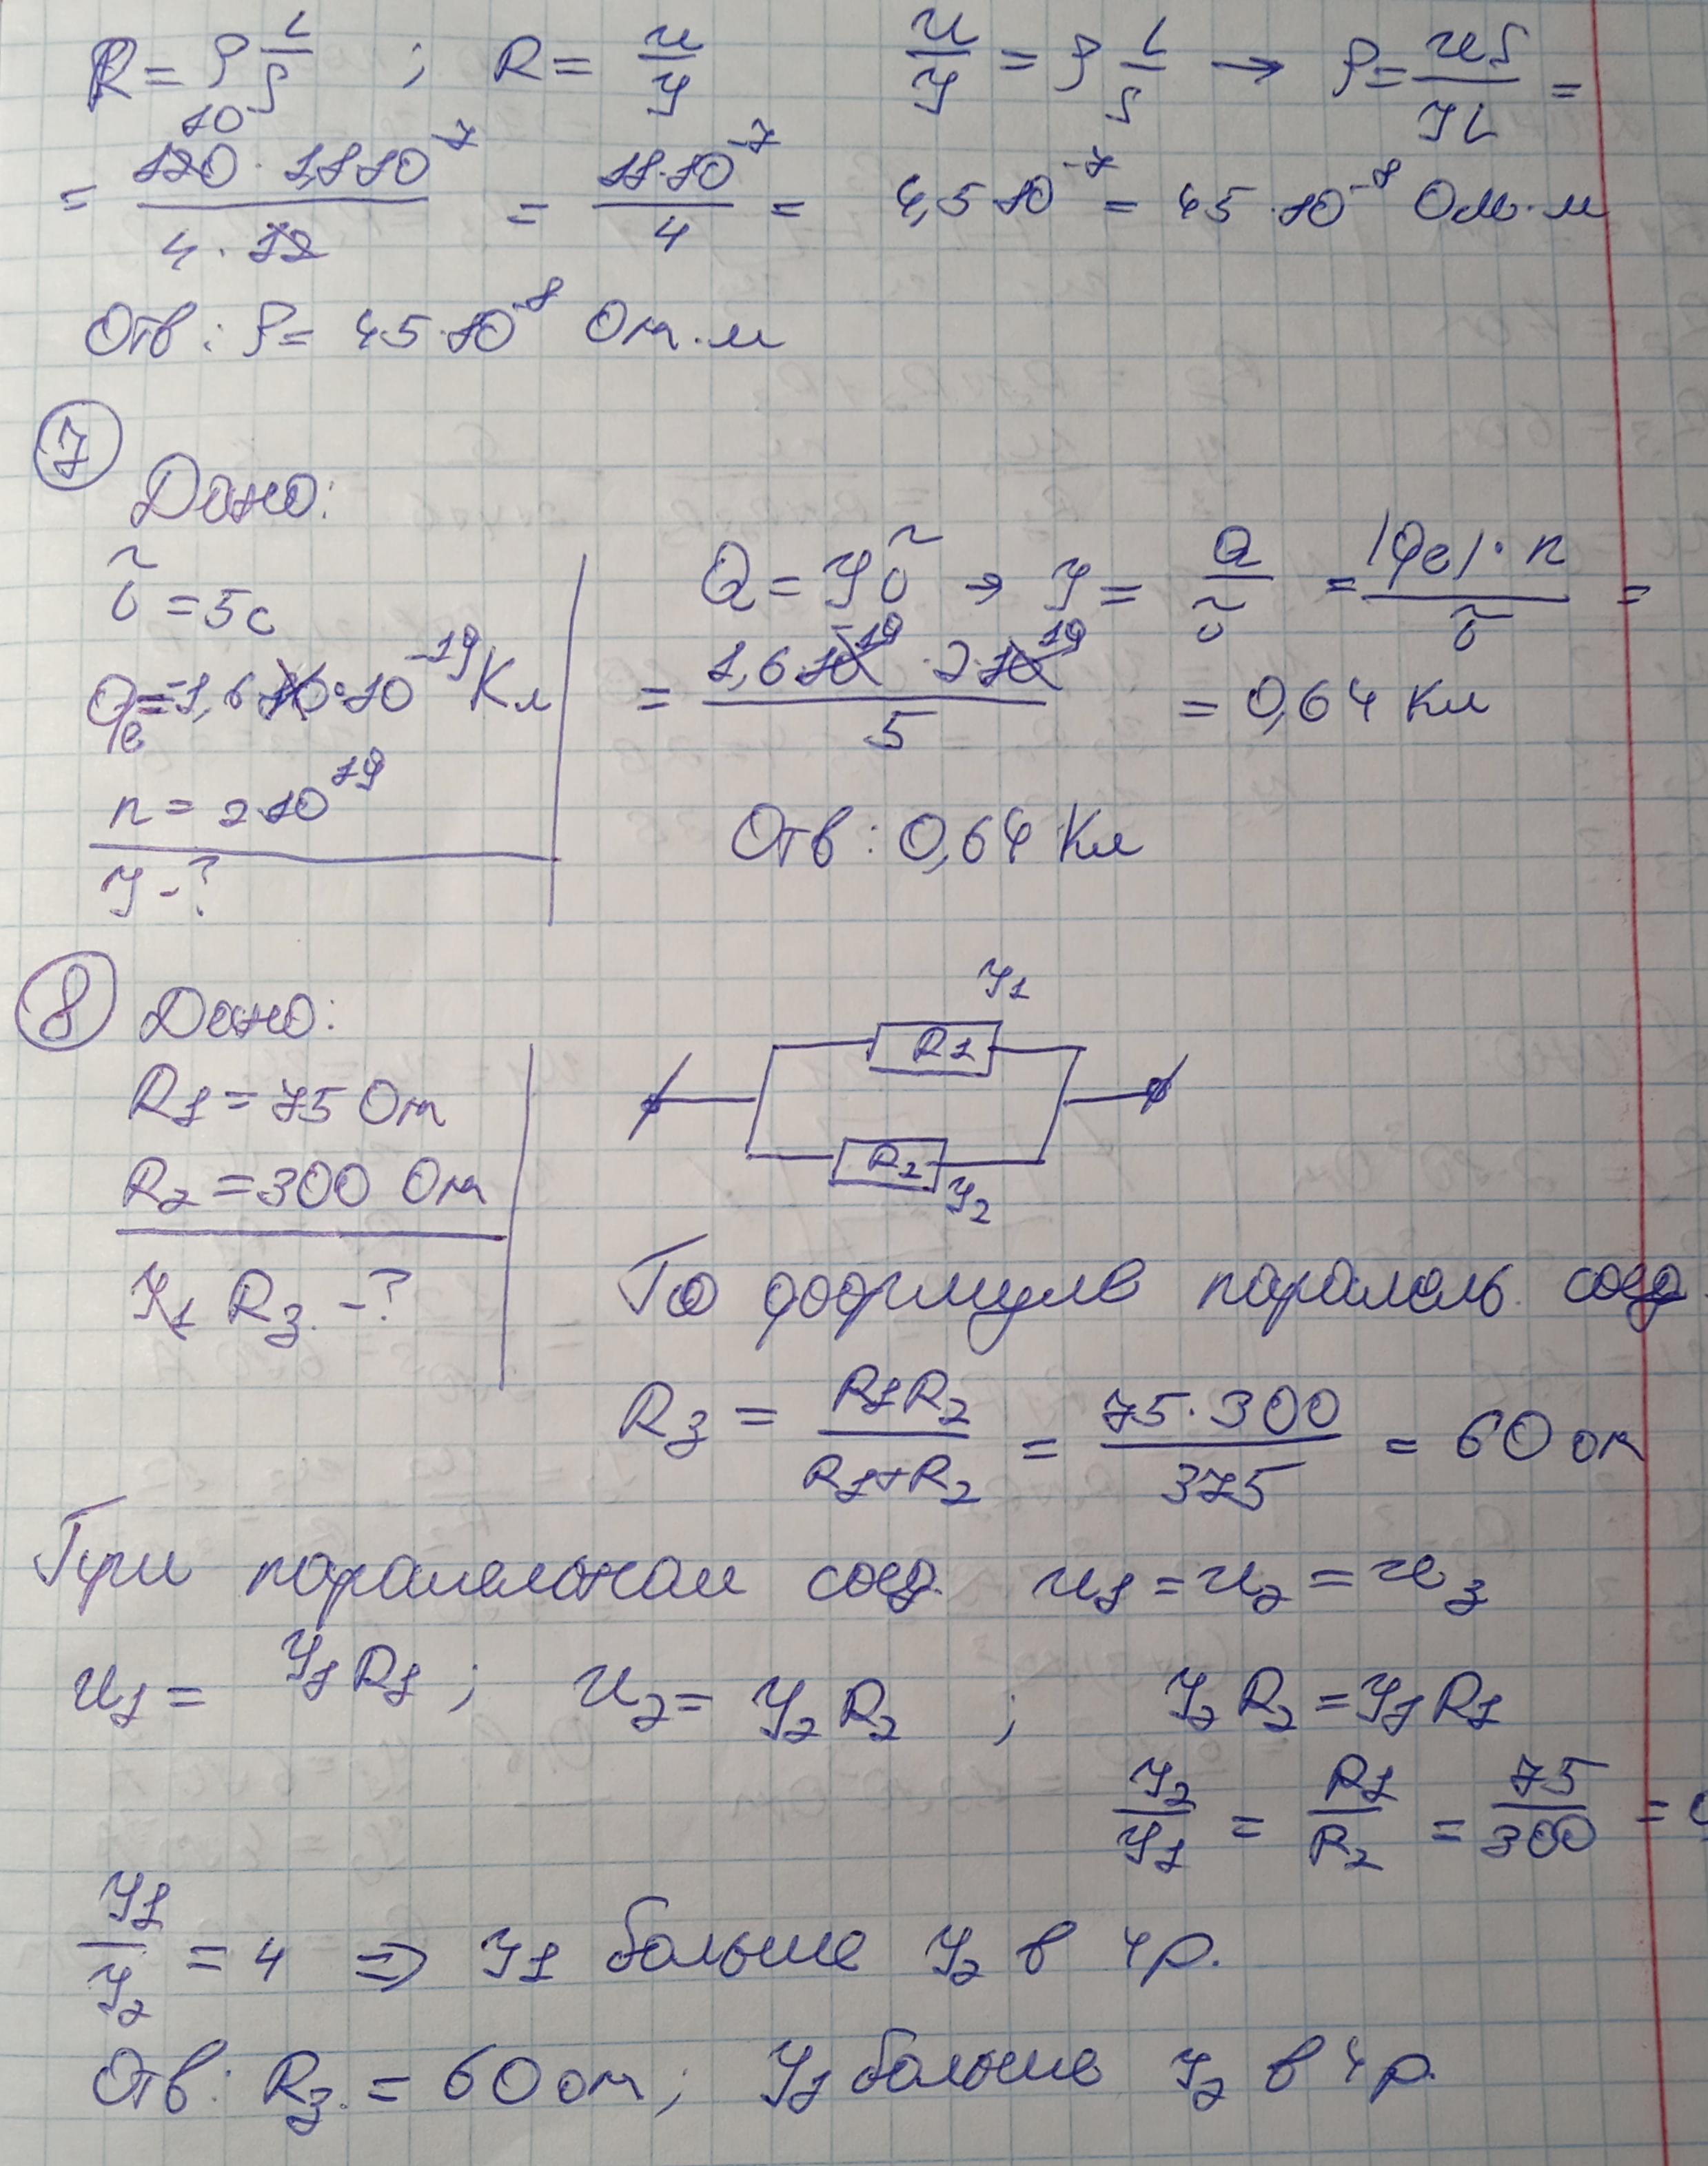 R = ρ L/S ; R = U/I U/I = ρ L/S → ρ = US/IL =
= 120 · 1,8·10⁻⁷ / 4 · 12 = 18·10⁻⁷/4 = 4,5·10⁻⁷ = 45·10⁻⁸ Ом·м
10
Отв: ρ = 45·10⁻⁸ Ом·м
7 Дано:
t = 5с
qe = -1,6·10⁻¹⁹ Кл
n = 2·10¹⁹
I - ?
Q = It → I = Q/t = |qe|·n / t =
= 1,6·10⁻¹⁹ · 2·10¹⁹ / 5 = 0,64 Кл
Отв: 0,64 Кл
8 Дано:
R1 = 75 Ом
R2 = 300 Ом
I1 Rэ - ?
I1
R1
R2
I2
По формуле паралель. соед.
Rэ = R1R2 / R1+R2 = 75·300 / 375 = 60 ом
При паралельном соед. U1 = U2 = Uэ
U1 = I1R1 ; U2 = I2R2 ; I2R2 = I1R1
I2/I1 = R1/R2 = 75/300 =
I1/I2 = 4 ⇒ I1 больше I2 в 4 р.
Отв: Rэ = 60 ом; I1 больше I2 в 4 р.